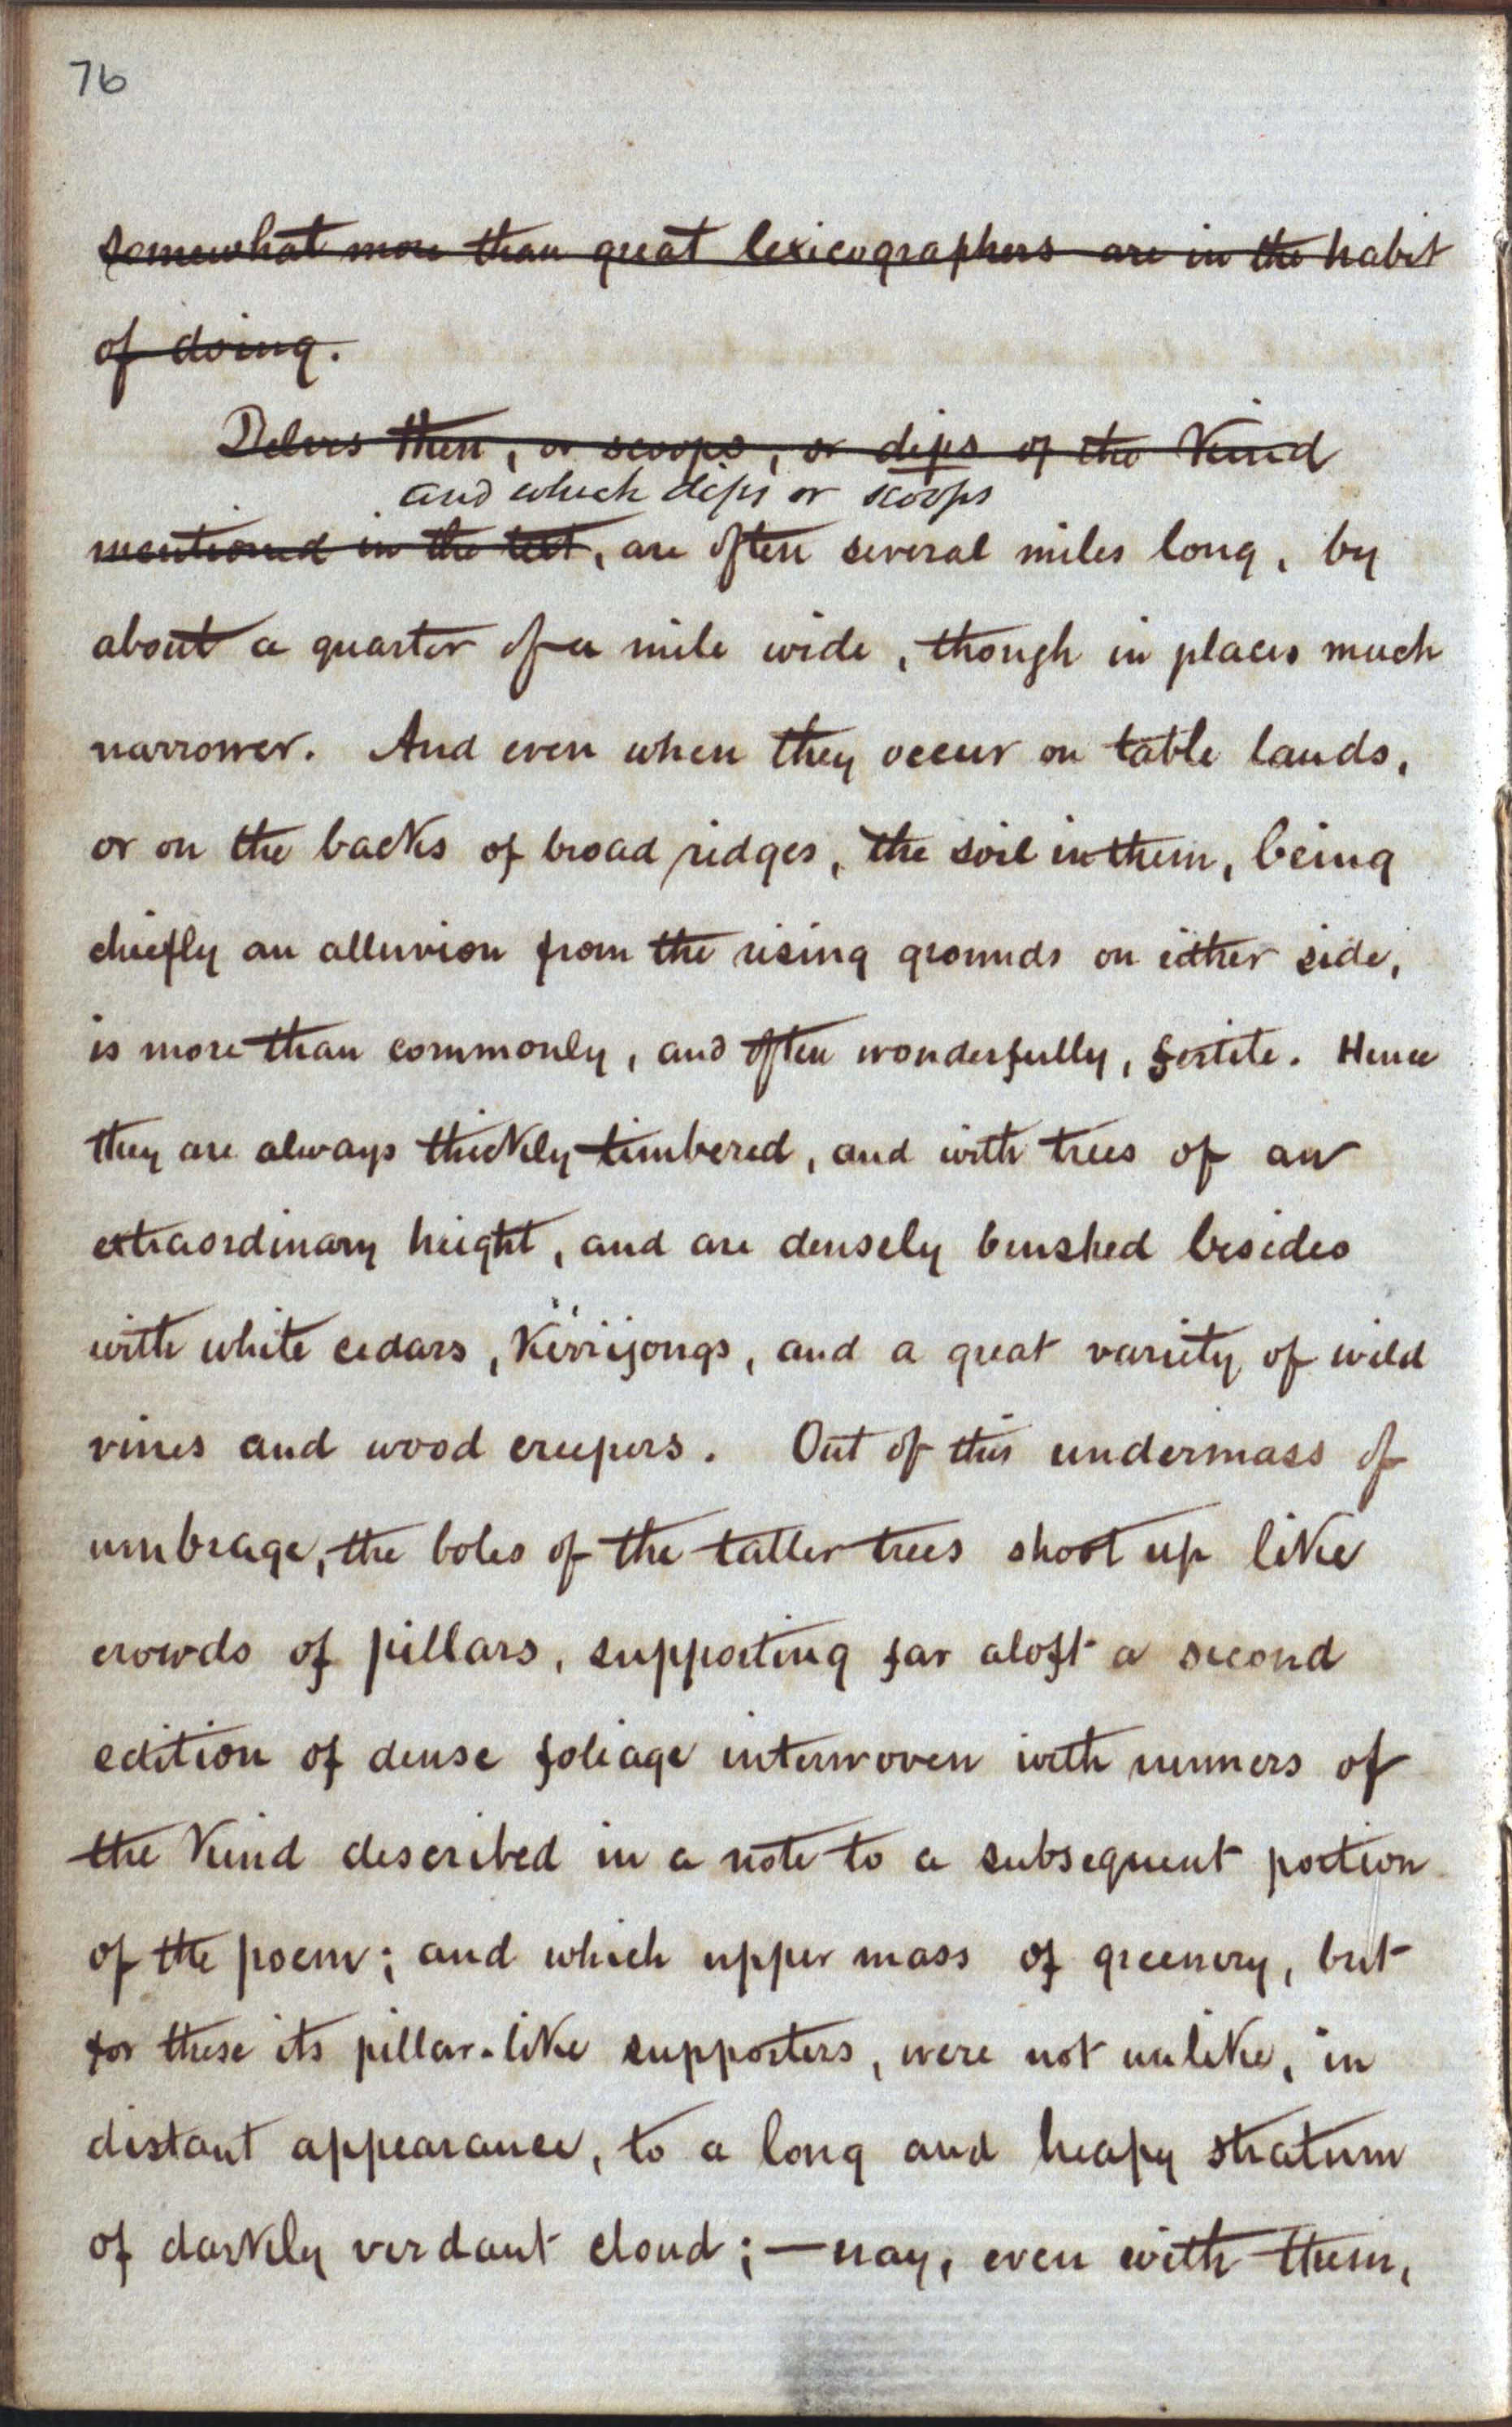 76
somewhat more than great lexicographers are in the habit
of doing.
Delves then, or scoops, or dips of the kind
and which dips or scoops
mentioned in the text, are often several miles long, by
about a quarter of a mile wide, though in places much
narrower. And even when they occur on table lands,
or on the backs of broad ridges, the soil in them, being
chiefly an alluvion from the rising grounds on either side,
is more than commonly, and often wonderfully, fertile. Hence
they are always thickly timbered, and with trees of an
extraordinary height, and are densely bushed besides
with white cedars, Kurrijongs, and a great variety of wild
vines and wood creepers. Out of this undermass of
umbrage, the boles of the taller trees shoot up like
crowds of pillars, supporting far aloft a second
edition of dense foliage interwoven with runners of
the kind described in a note to a subsequent portion
of the poem; and which upper mass of greenery, but
for these its pillar-like supporters, were not unlike, in
distant appearance, to a long and heapy stratum
of darkly verdant cloud;—nay, even with them,